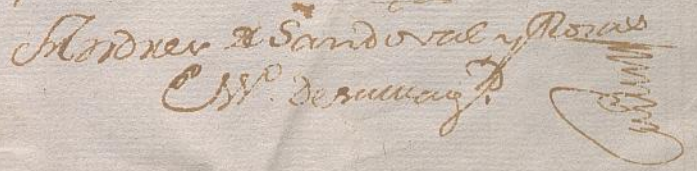 Andres de Sandoval y Rojas
Essno. de su mag.d